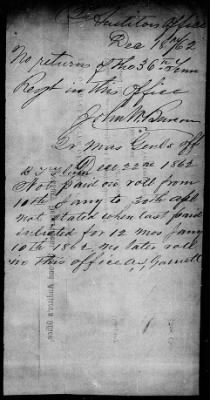 Auditors Office
Dec 18 /62
No returns of the 36th Tenn
Regt in this Office
John W
Qr Mas Genls off
Dec 22nd 1862
Not paid on roll from
10th Jany to 30th apl
not stated when last paid
inlisted for 12 mos Jany
10th 1862, no later roll
in this office